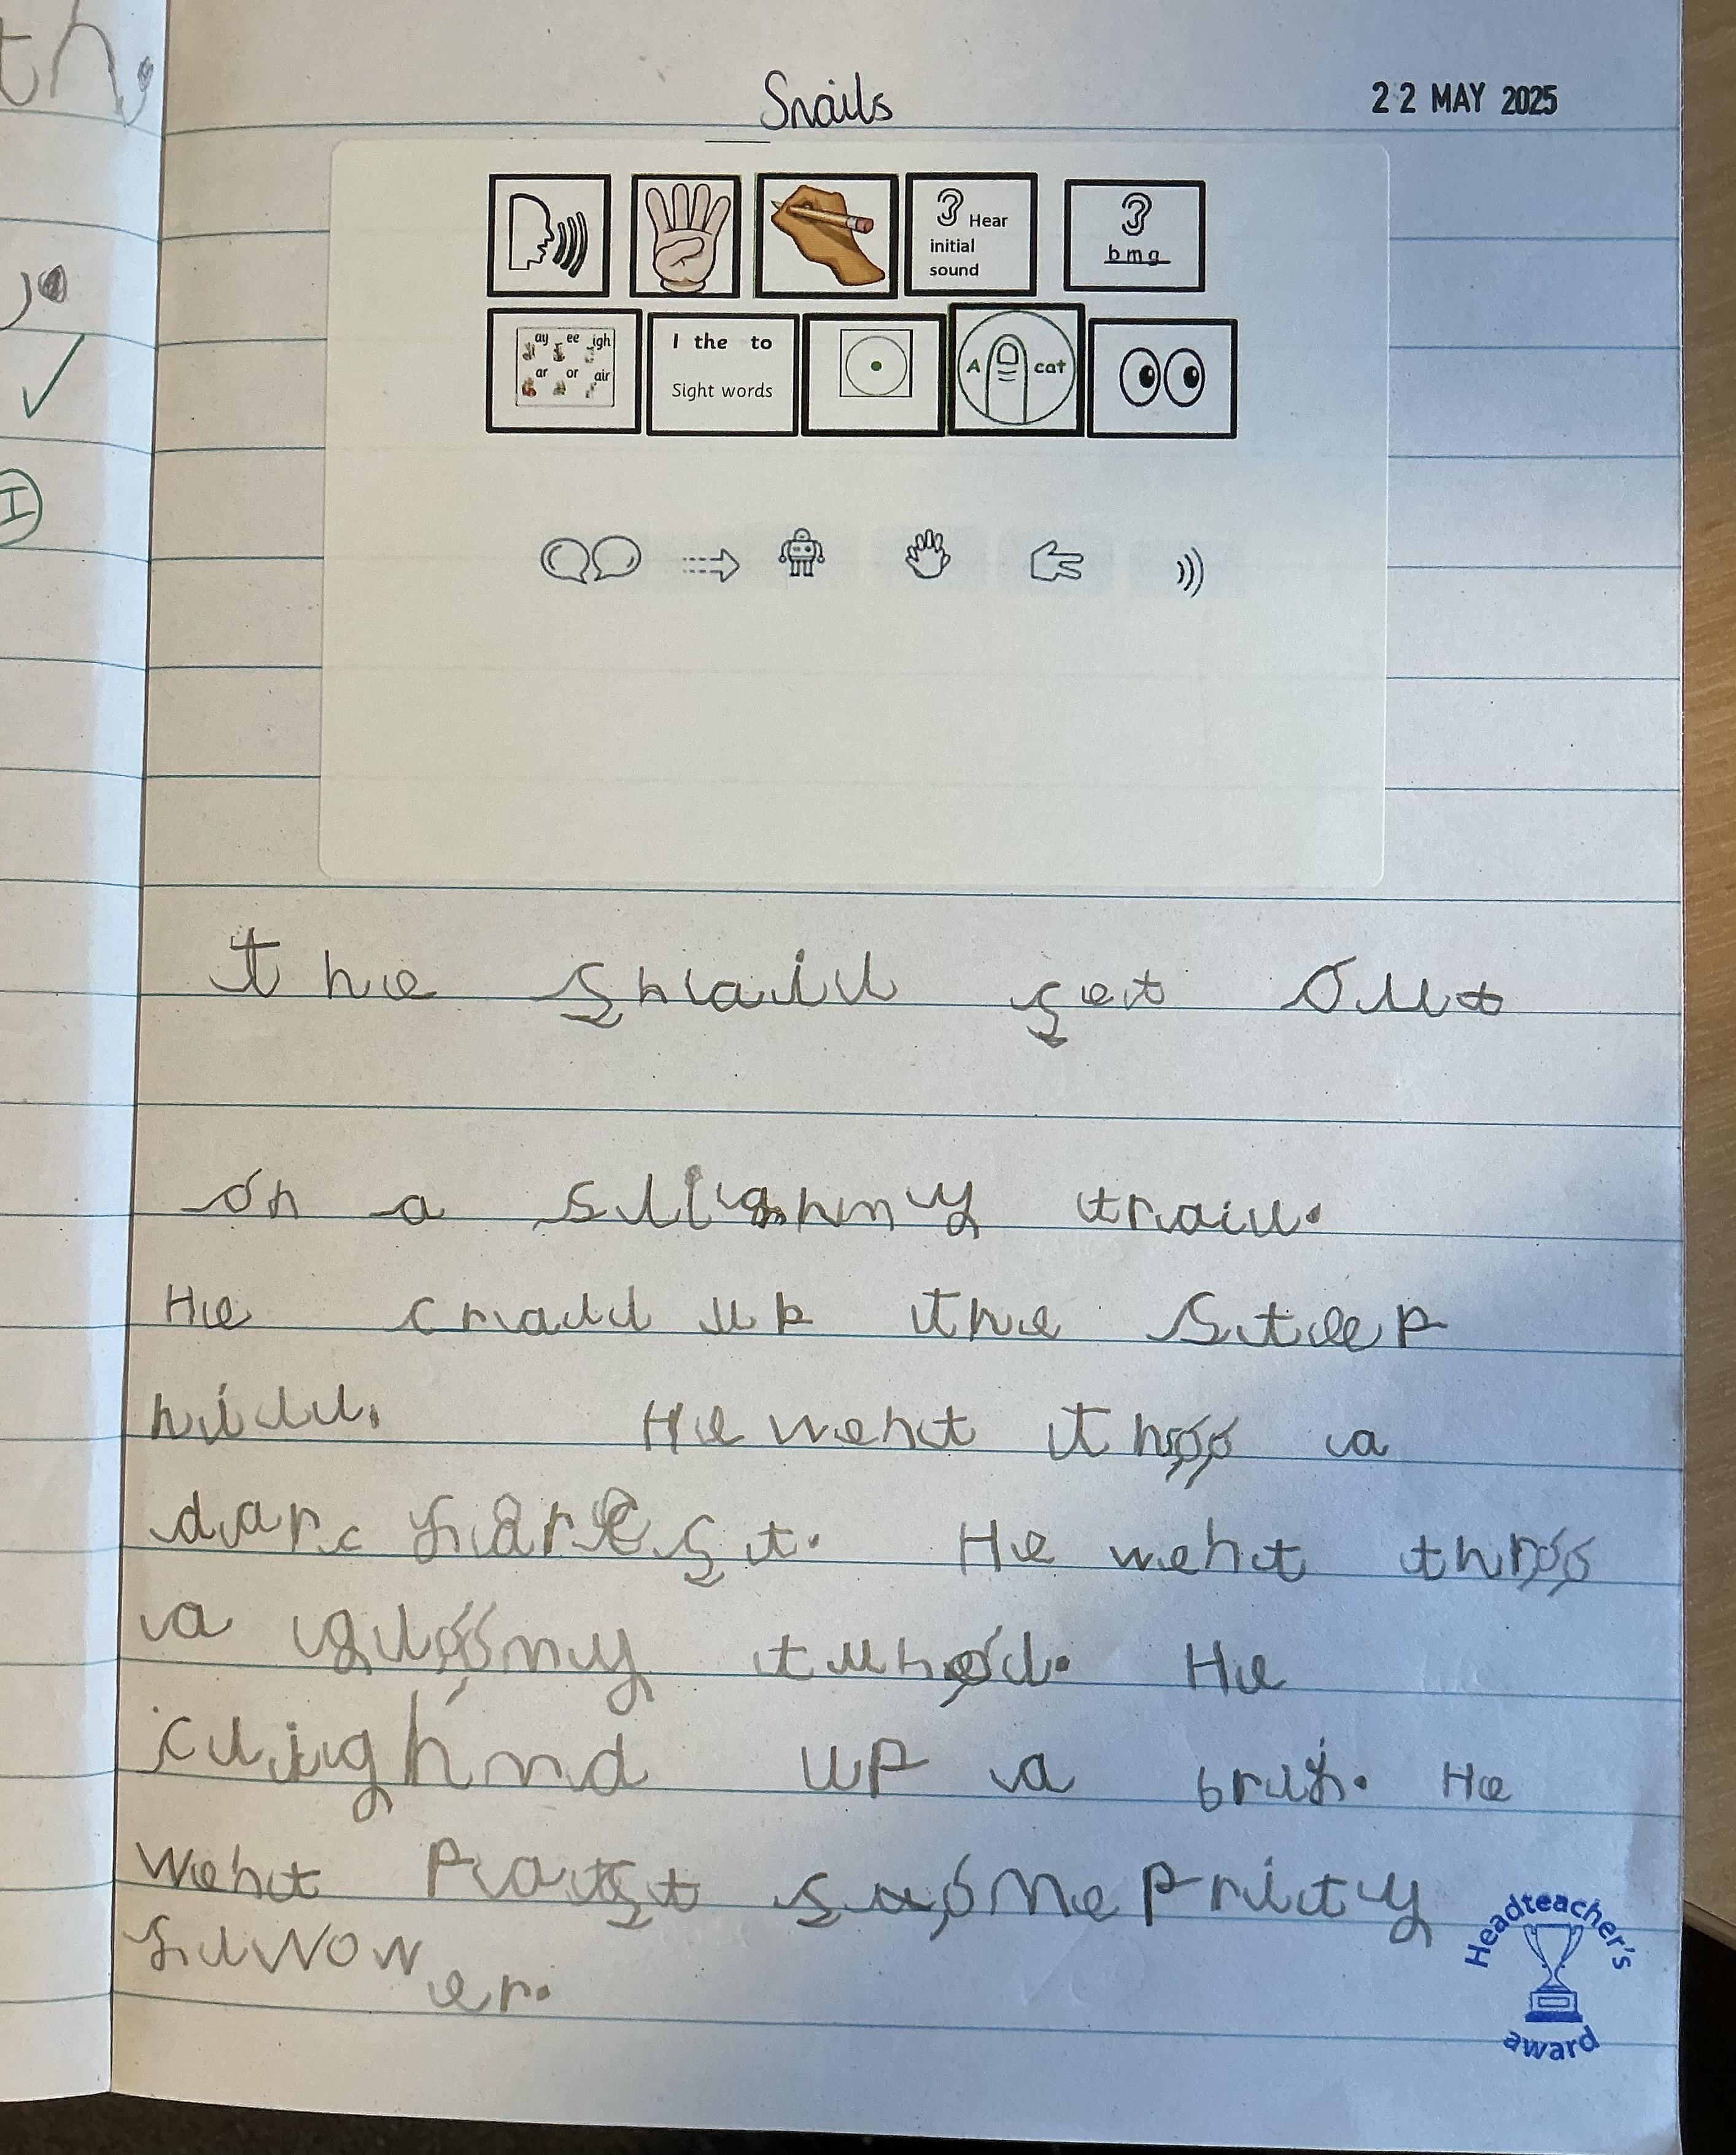 th.
Snails
22 MAY 2025
3 Hear
initial
sound
b m a
ay ee igh
ar or air
I the to
Sight words
A cat
I
the snail set out
on a slighmy trail.
He crall up the steep
hill. He went throo a
darc forest. He went throo
a gloomy tunol. He
clighmd up a brij. He
went past some prity
flwower.
Headteacher's
award